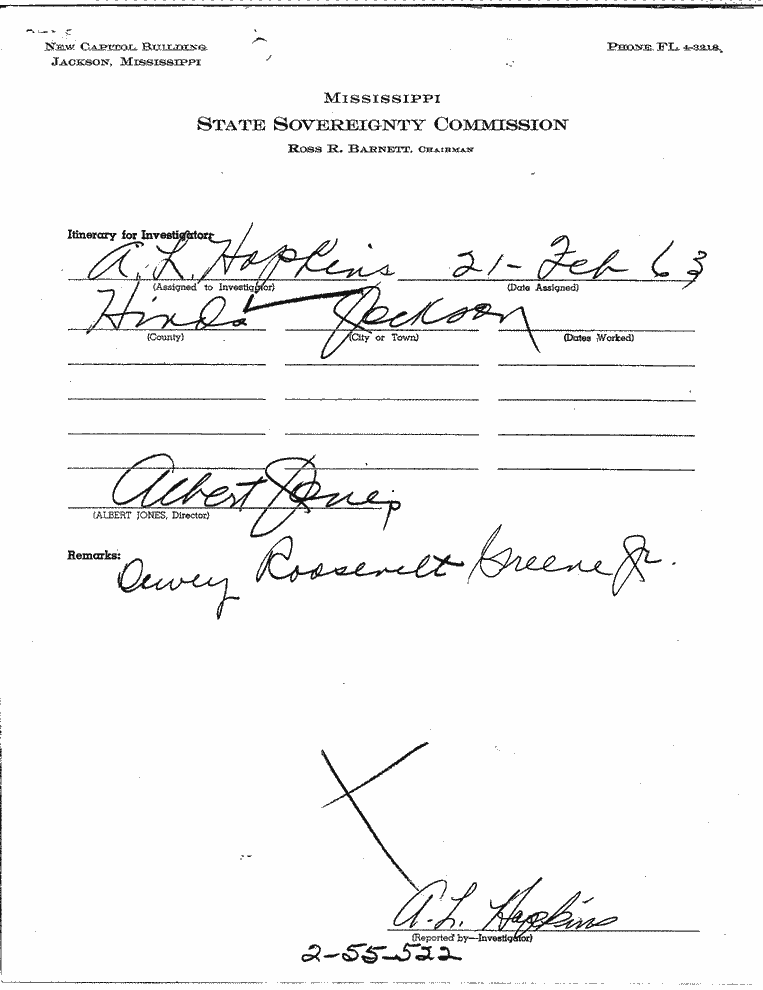 NEW CAPITOL BUILDING
JACKSON, MISSISSIPPI
PHONE FL 4-3218
MISSISSIPPI
STATE SOVEREIGNTY COMMISSION
ROSS R. BARNETT, CHAIRMAN
Itinerary for Investigator:
A. L. Hopkins 21- Feb 63
(Assigned to Investigator) (Date Assigned)
Hinds Jackson
(County) (City or Town) (Dates Worked)
Albert Jones
(ALBERT JONES, Director)
Remarks:
Dewey Roosevelt Greene Jr.
A. L. Hopkins
(Reported by—Investigator)
2-55-522